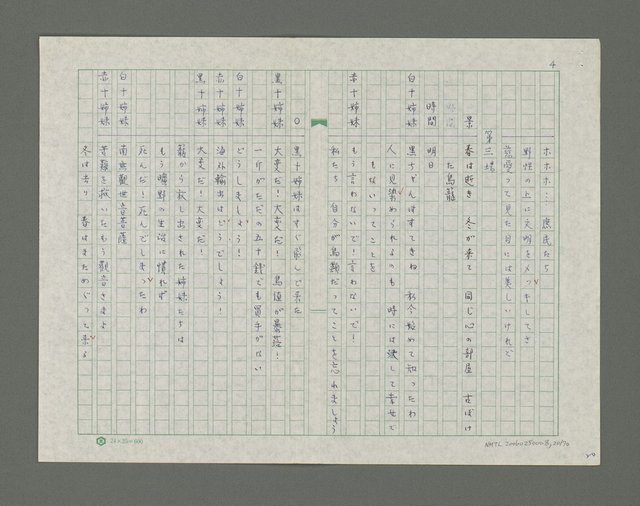 4
ホホホ… 庶民たち
野性の上に文明をメッキしてさ
慈愛って見た目には美しいけれど
第三場
景 春は逝き 冬が来て 同じ心の部屋 古ぼけ
た鳥籠
時間 明日
白十姉妹 黒ちゃんはすてきね 私今始めて知ったわ
人に見染められるのも 時には決して幸せで
もないってことを
赤十姉妹 もう言わないで!言わないで!
私たち 自分が鳥類だってことを忘れましょう
○ 黒十姉妹はすぐ戻して来た
黒十姉妹 大変だ!大変だ! 鳥価が暴落!
一斤がただの五十銭でも買手がない
白十姉妹 どうしましょう!
赤十姉妹 海外輸出はどうでしょう!
黒十姉妹 大変だ!大変だ!
籠から放し出された姉妹たちは
もう曠野の生活に慣れず
死んだ!死んでしまったわ
白十姉妹 南無観世音菩薩
赤十姉妹 苦難を救いたもう觀音さまよ
冬は去り 春はまためぐって来る
24×25=(600)
NMTL 20060250008, 20/70